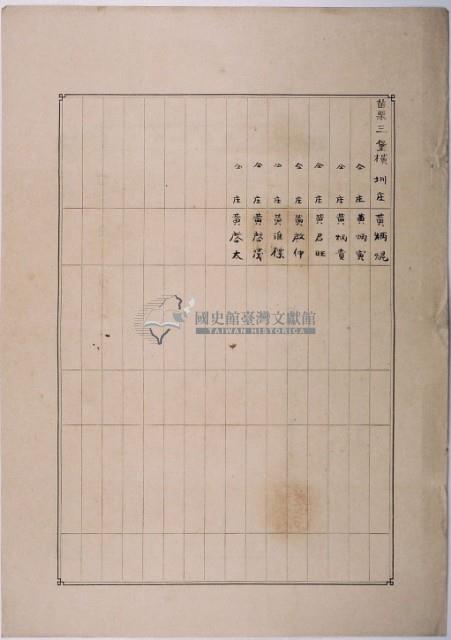 苗栗三堡橫圳庄 黃炳焜
仝 庄 黃炳寅
仝 庄 黃炳貴
仝 庄 黃君旺
仝 庄 黃啟仲
仝 庄 黃進
仝 庄 黃啓茂
仝 庄 黃啓太
國史館臺灣文獻館
TAIWAN HISTORICA